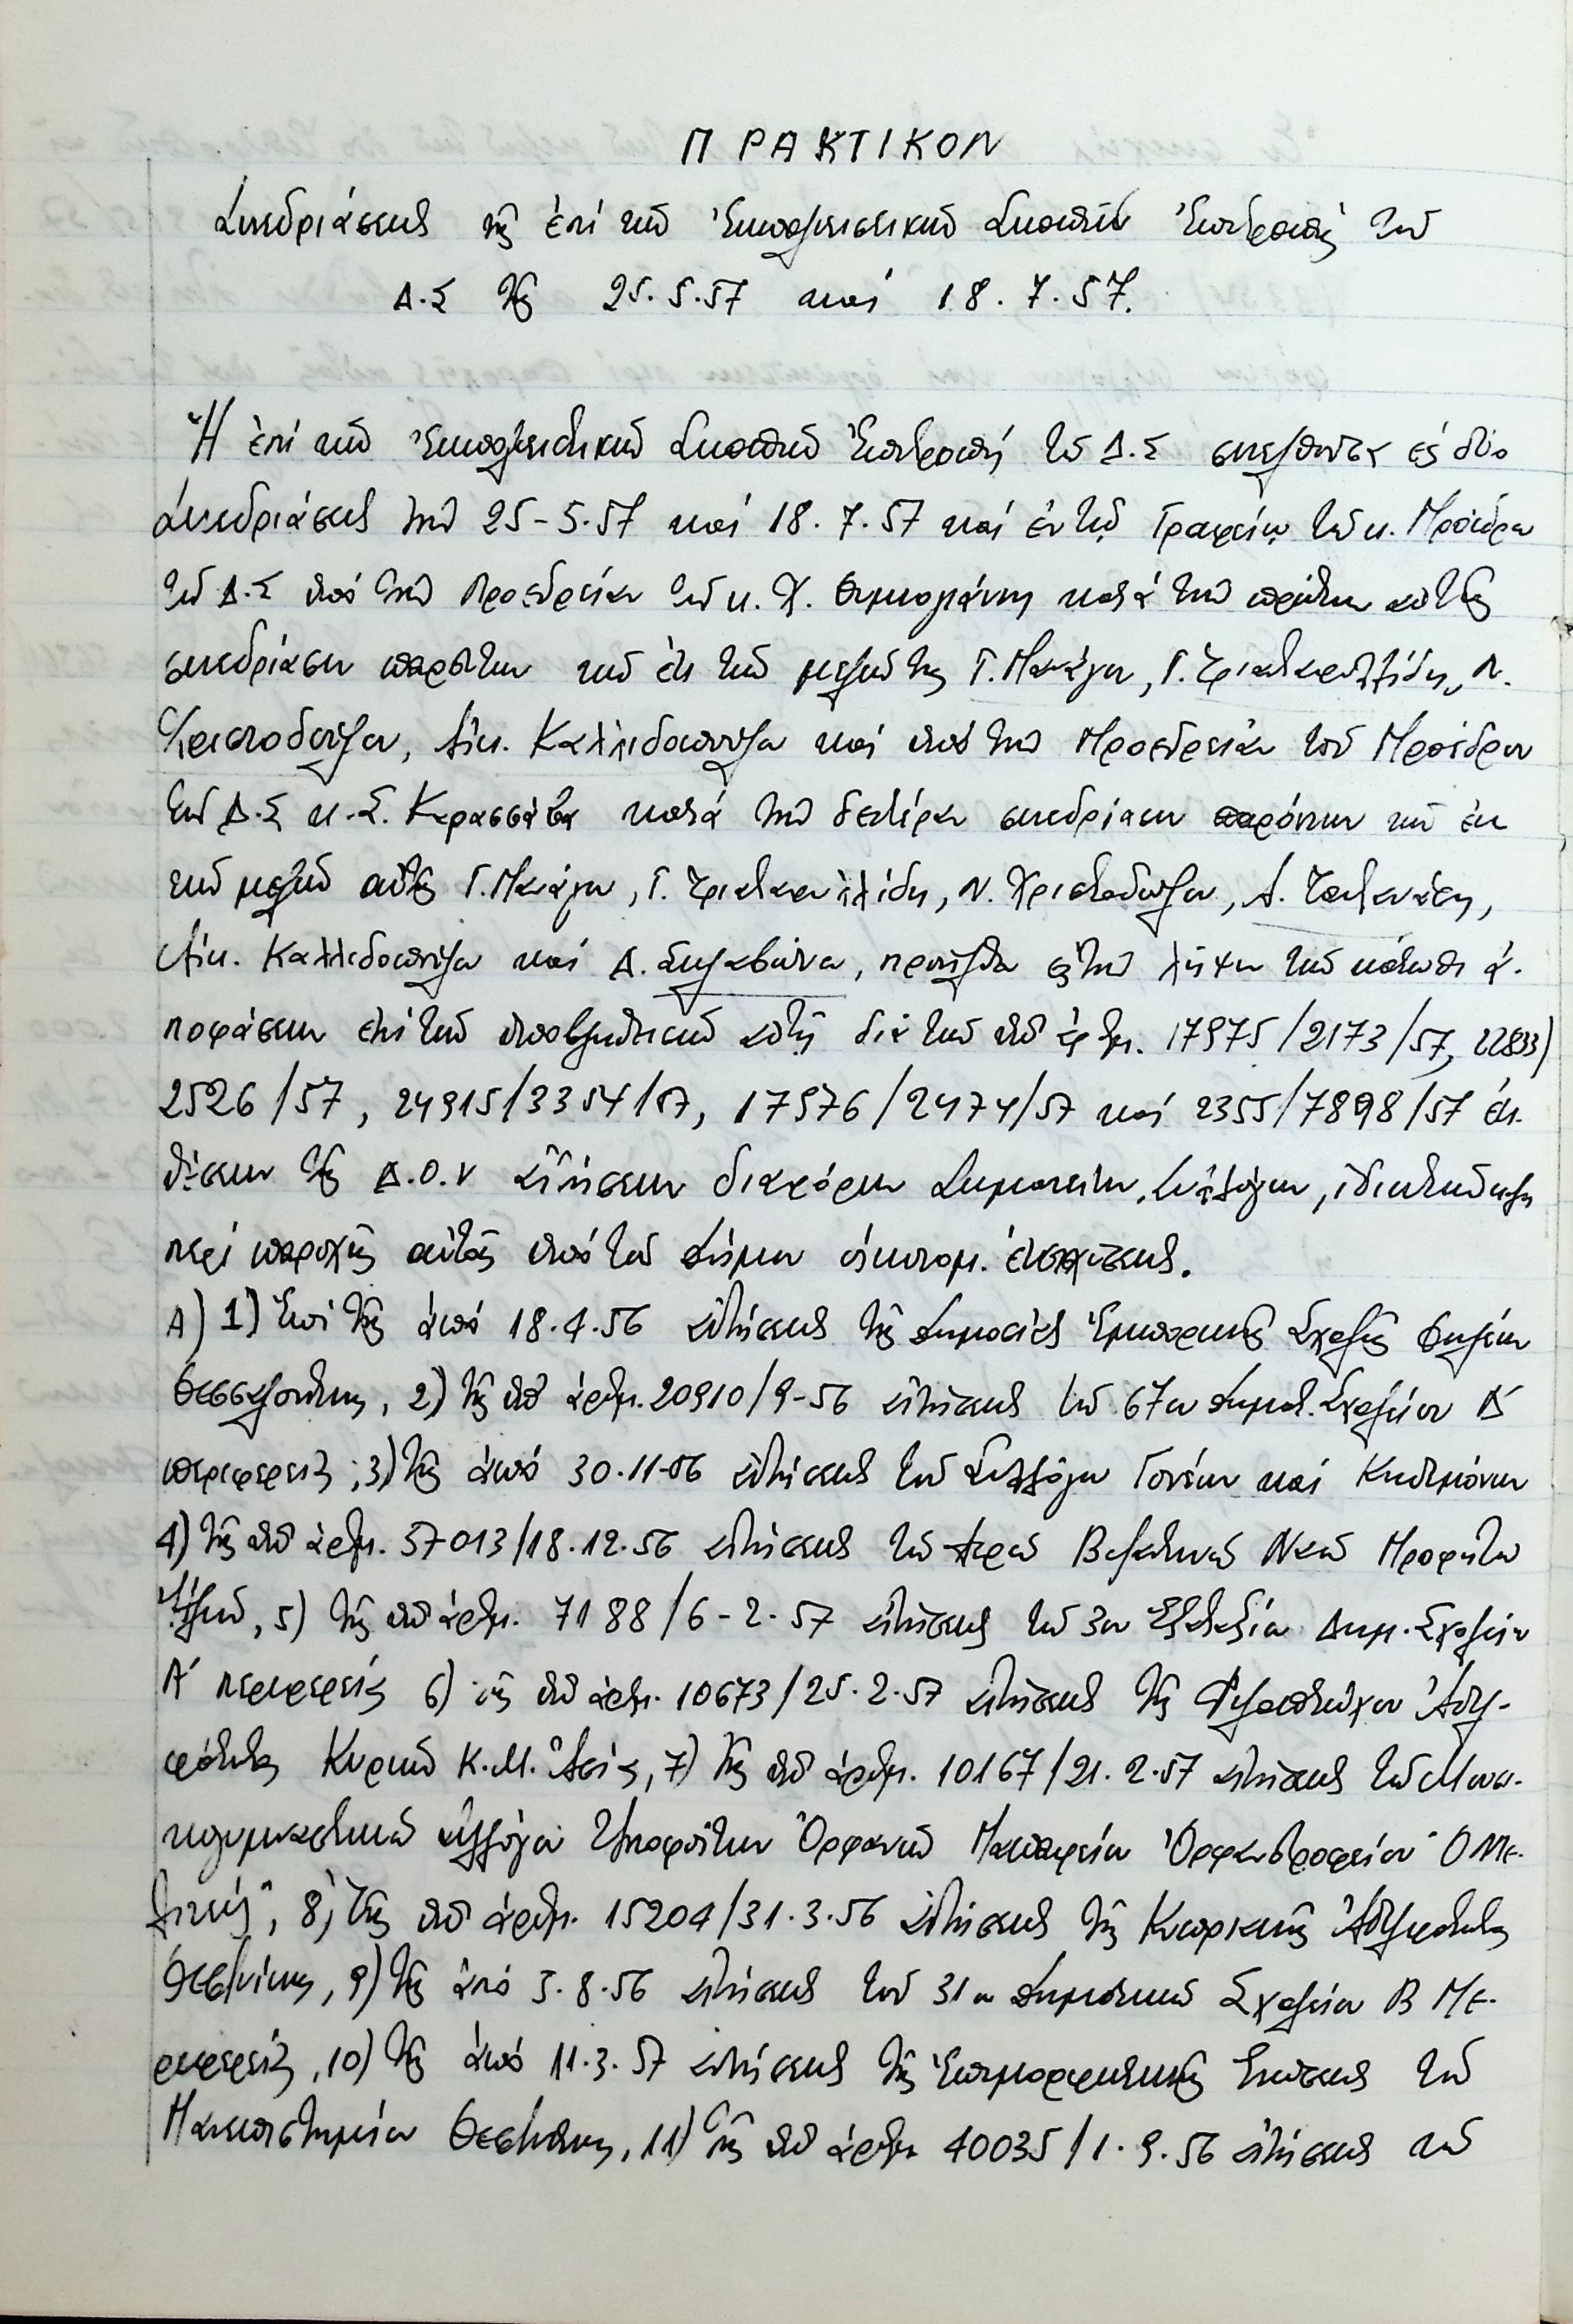 ΠΡΑΚΤΙΚΟΝ
Συνεδριάσεως τῆς ἐπί τῶν Ἐκπολιτιστικῶν Σκοπῶν Ἐπιτροπῆς τοῦ
Δ.Σ τῆς 25.5.57 καί 18.7.57.
Ἡ ἐπί τῶν Ἐκπολιτιστικῶν Σκοπῶν Ἐπιτροπή τοῦ Δ.Σ συνελθοῦσα εἰς δύο
Συνεδριάσεις τήν 25-5-57 καί 18.7.57 καί ἐν τῷ Γραφείῳ τοῦ κ. Προέδρου
τοῦ Δ.Σ ὑπό τήν Προεδρείαν τοῦ κ. Χ. κατά τήν πρώτην αὐτῆς
συνεδρίασιν παρόντων τῶν ἐκ τῶν μελῶν της Γ. Μανώλη, Γ. Τριανταφυλλίδη, Ν.
Χριστοδούλου, Αἰκ. Καλλιδοπούλου καί ὑπό τήν Προεδρείαν τοῦ Προέδρου
τοῦ Δ.Σ κ. Σ. κατά τήν δευτέραν συνεδρίασιν παρόντων τῶν ἐκ
τῶν μελῶν αὐτῆς Γ. Μανώλη, Γ. Τριανταφυλλίδη, Ν. Χριστοδούλου, Α.
Αἰκ. Καλλιδοπούλου καί Δ. προῆλθεν εἰς τήν λῆψιν τῶν κάτωθι ἀ-
ποφάσεων ἐπί τῶν ὑποβληθεισῶν αὐτῇ διά τῶν ὑπ' ἀριθμ. 17975/2173/57, 22833/
2526/57, 24915/3354/57, 17976/2474/57 καί 2355/7898/57 ἐκ-
θέσεων τῆς Δ.Ο.Υ αἰτήσεων διαφόρων Σωματείων, Συλλόγων, ἰδιωτῶν κλπ
περί παροχῆς αὐτοῖς ὑπό τοῦ Δήμου οἰκονομ. ἐνισχύσεως.
Α) 1) Ἐπί τῆς ἀπό 18.4.56 αἰτήσεως τῆς Δημοσίας Ἐμπορικῆς Σχολῆς Θηλέων
Θεσσαλονίκης, 2) τῆς ὑπ' ἀριθμ. 20910/9-56 αἰτήσεως τοῦ 67ου Δημοτ. Σχολείου Δ'
περιφερείας, 3) τῆς ἀπό 30-11-56 αἰτήσεως τοῦ Συλλόγου Γονέων καί Κηδεμόνων
4) τῆς ὑπ' ἀριθμ. 57013/18.12.56 αἰτήσεως τοῦ Ἱεροῦ Βυζαντινοῦ Ναοῦ Προφήτου
Ἠλιοῦ, 5) τῆς ὑπ' ἀριθμ. 7188/6-2-57 αἰτήσεως τοῦ 3ου Ἑξαταξίου Δημ. Σχολείου
Α' περιφερείας 6) τῆς ὑπ' ἀριθμ. 10673/25.2.57 αἰτήσεως τῆς Φιλοπτώχου Ἀδελ-
φότητος Κυριῶν Κ.Μ. Ἀσίας, 7) τῆς ὑπ' ἀριθμ. 10167/21.2.57 αἰτήσεως τοῦ Μουσι-
κογυμναστικοῦ Συλλόγου Ὑποφοίτων Ὀρφανῶν Παπαφείου Ὀρφανοτροφείου "Ο ΜΕ-
λιτεύς", 8) τῆς ὑπ' ἀριθμ. 15204/31.3.56 αἰτήσεως τῆς Κυπριακῆς Ἀδελφότητος
Θεσ/νίκης, 9) τῆς ἀπό 3.8.56 αἰτήσεως τοῦ 31ου Δημοτικοῦ Σχολείου Β Πε-
ριφερείας, 10) τῆς ἀπό 11.3.57 αἰτήσεως τῆς Ἐπιμορφωτικῆς Ἑνώσεως τοῦ
Πανεπιστημίου Θεσ/νίκης, 11) τῆς ὑπ' ἀριθμ 40035/1.9.56 αἰτήσεως τοῦ